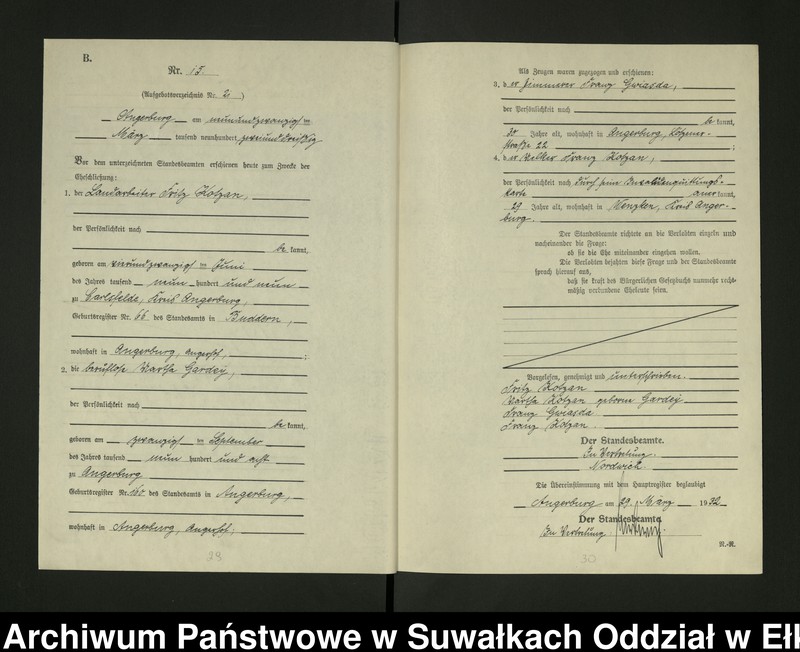 B.
Nr. 15.
(Aufgebotsverzeichnis Nr. 2)
Angerburg am neunundzwanzigsten
März tausend neunhundert zweiunddreißig
Vor dem unterzeichneten Standesbeamten erschienen heute zum Zwecke der
Eheschließung:
1. der Landarbeiter Fritz Kotzan,
der Persönlichkeit nach
be kannt,
geboren am vierundzwanzigsten Juni
des Jahres tausend neun hundert und neun
zu Carlsfelde, Kreis Angerburg,
Geburtsregister Nr. 66 des Standesamts in Buddern,
wohnhaft in Angerburg, Angerhof,;
2. die berufslose Martha Gardey,
der Persönlichkeit nach
be kannt,
geboren am zwanzigsten September
des Jahres tausend neun hundert und acht
zu Angerburg
Geburtsregister Nr. 160 des Standesamts in Angerburg,
wohnhaft in Angerburg, Angerhof,
29
Als Zeugen waren zugezogen und erschienen:
3. der Zimmerer Franz Gwiasda,
der Persönlichkeit nach
be kannt,
30 Jahre alt, wohnhaft in Angerburg, Lötzener-
straße 22;
4. der Melker Franz Kotzan,
der Persönlichkeit nach durch seine Invalidenquittungs-
karte anerkannt,
29 Jahre alt, wohnhaft in Wenzken, Kreis Anger-
burg.
Der Standesbeamte richtete an die Verlobten einzeln und
nacheinander die Frage:
ob sie die Ehe miteinander eingehen wollen.
Die Verlobten bejahten diese Frage und der Standesbeamte
sprach hierauf aus,
daß sie kraft des Bürgerlichen Gesetzbuchs nunmehr recht-
mäßig verbundene Eheleute seien.
Vorgelesen, genehmigt und unterschrieben.
Fritz Kotzan
Martha Kotzan geborene Gardey
Franz Gwiasda
Franz Kotzan.
Der Standesbeamte.
In Vertretung.
Nordwick.
Die Übereinstimmung mit dem Hauptregister beglaubigt
Angerburg am 29. März 1932
Der Standesbeamte
In Vertretung.
R.-R.
30
Archiwum Państwowe w Suwałkach Oddział w Ełk